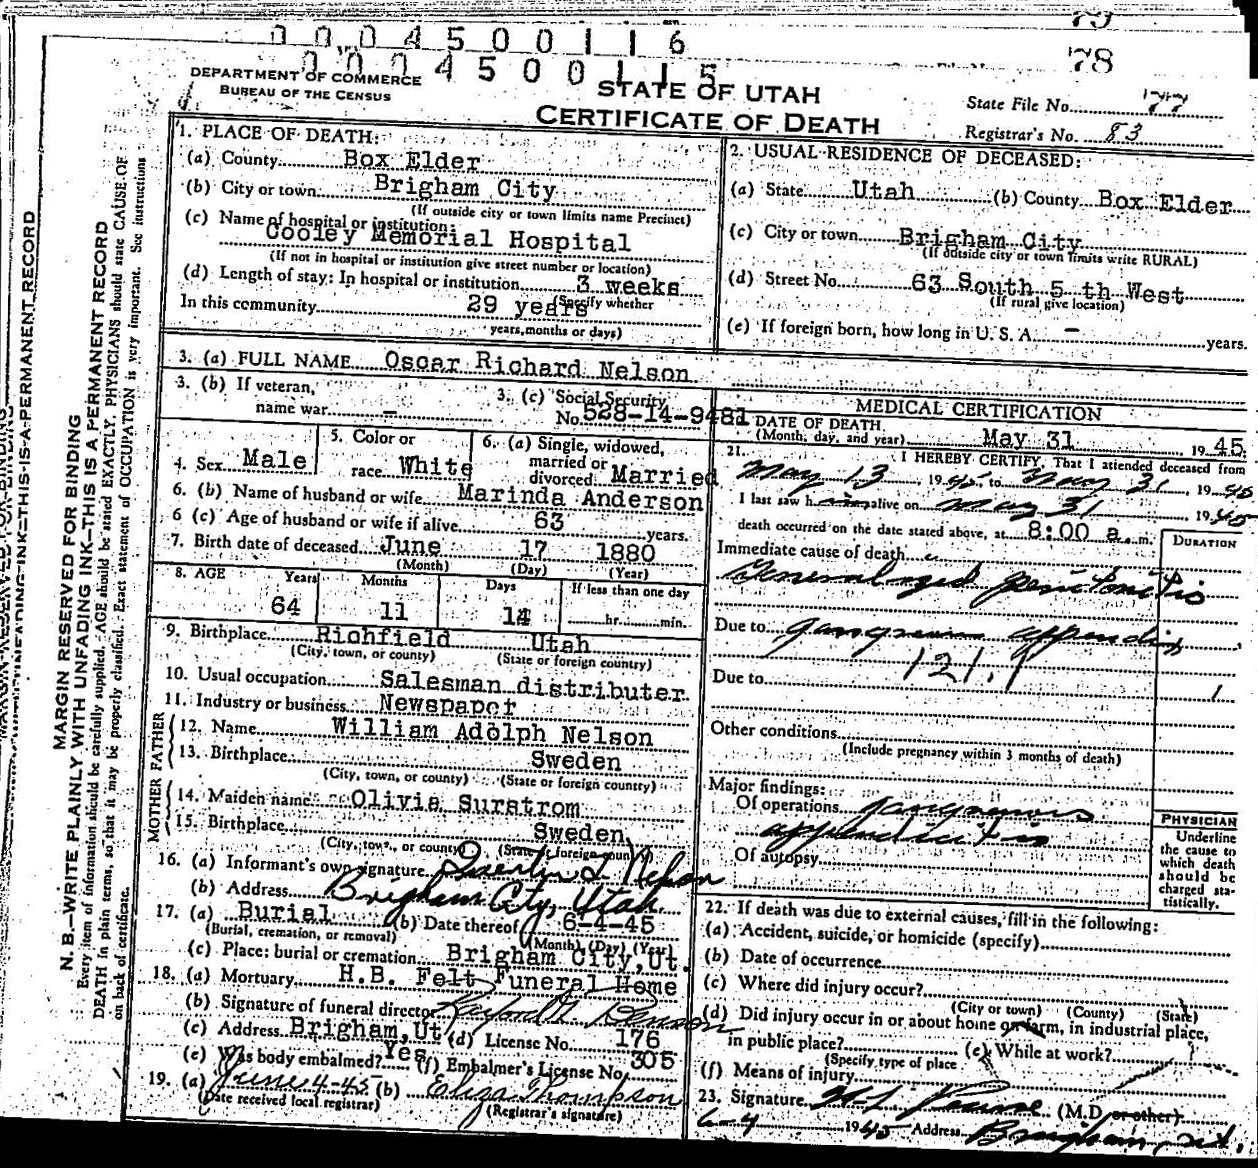 0 0 0 4 5 0 0 1 1 6
79
0 0 0 4 5 0 0 1 1 5
78
DEPARTMENT OF COMMERCE
BUREAU OF THE CENSUS
STATE OF UTAH
CERTIFICATE OF DEATH
State File No. 77
Registrar's No. 83
MARGIN RESERVED FOR BINDING
N. B.—WRITE PLAINLY WITH UNFADING INK—THIS IS A PERMANENT RECORD
Every item of information should be carefully supplied. AGE should be stated EXACTLY. PHYSICIANS should state CAUSE OF
DEATH in plain terms, so that it may be properly classified. Exact statement of OCCUPATION is very important. See instructions
on back of certificate.
1. PLACE OF DEATH:
(a) County Box Elder
(b) City or town Brigham City
(If outside city or town limits name Precinct)
(c) Name of hospital or institution:
Cooley Memorial Hospital
(If not in hospital or institution give street number or location)
(d) Length of stay: In hospital or institution 3 weeks
(Specify whether
In this community 29 years
years, months or days)
2. USUAL RESIDENCE OF DECEASED:
(a) State Utah (b) County Box Elder
(c) City or town Brigham City
(If outside city or town limits write RURAL)
(d) Street No. 63 South 5 th West
(If rural give location)
(e) If foreign born, how long in U. S. A. — years.
3. (a) FULL NAME Oscar Richard Nelson
3. (b) If veteran,
name war —
3. (c) Social Security
No. 528-14-9481
4. Sex Male
5. Color or
race White
6. (a) Single, widowed,
married or
divorced Married
6. (b) Name of husband or wife Marinda Anderson
6 (c) Age of husband or wife if alive 63 years.
7. Birth date of deceased June 17 1880
(Month) (Day) (Year)
8. AGE Years Months Days If less than one day
64 11 14 hr. min.
9. Birthplace Richfield Utah
(City, town, or county) (State or foreign country)
10. Usual occupation Salesman distributer
11. Industry or business Newspaper
FATHER
12. Name William Adolph Nelson
13. Birthplace Sweden
(City, town, or county) (State or foreign country)
MOTHER
14. Maiden name Olivia Surstrom
15. Birthplace Sweden
(City, town, or county) (State or foreign country)
16. (a) Informant's own signature Nelson
(b) Address Brigham City, Utah
17. (a) Burial (b) Date thereof 6-4-45
(Burial, cremation, or removal) (Month) (Day) (Year)
(c) Place: burial or cremation Brigham City, Ut.
18. (a) Mortuary H.B. Felt Funeral Home
(b) Signature of funeral director
(c) Address Brigham, Ut (d) License No. 176
(e) Was body embalmed? Yes (f) Embalmer's License No. 305
19. (a) June 4-45 (b) Eliza Thompson
(Date received local registrar) (Registrar's signature)
MEDICAL CERTIFICATION
DATE OF DEATH
(Month, day, and year) May 31 1945
21. I HEREBY CERTIFY, That I attended deceased from
May 13, 1945 to May 31, 1945
I last saw him alive on May 31 1945
death occurred on the date stated above, at 8:00 a. m.
DURATION
Immediate cause of death
Generalized peritonitis
Due to gangrenous appendix
121.1
Due to 1
Other conditions
(Include pregnancy within 3 months of death)
Major findings:
Of operations gangrenous
appendicitis
Of autopsy
PHYSICIAN
Underline
the cause to
which death
should be
charged sta-
tistically.
22. If death was due to external causes, fill in the following:
(a) Accident, suicide, or homicide (specify)
(b) Date of occurrence
(c) Where did injury occur?
(City or town) (County) (State)
(d) Did injury occur in or about home or farm, in industrial place,
in public place? (e) While at work?
(Specify type of place
(f) Means of injury
23. Signature (M.D. or other)
6-4 1945 Address Brigham, Ut.